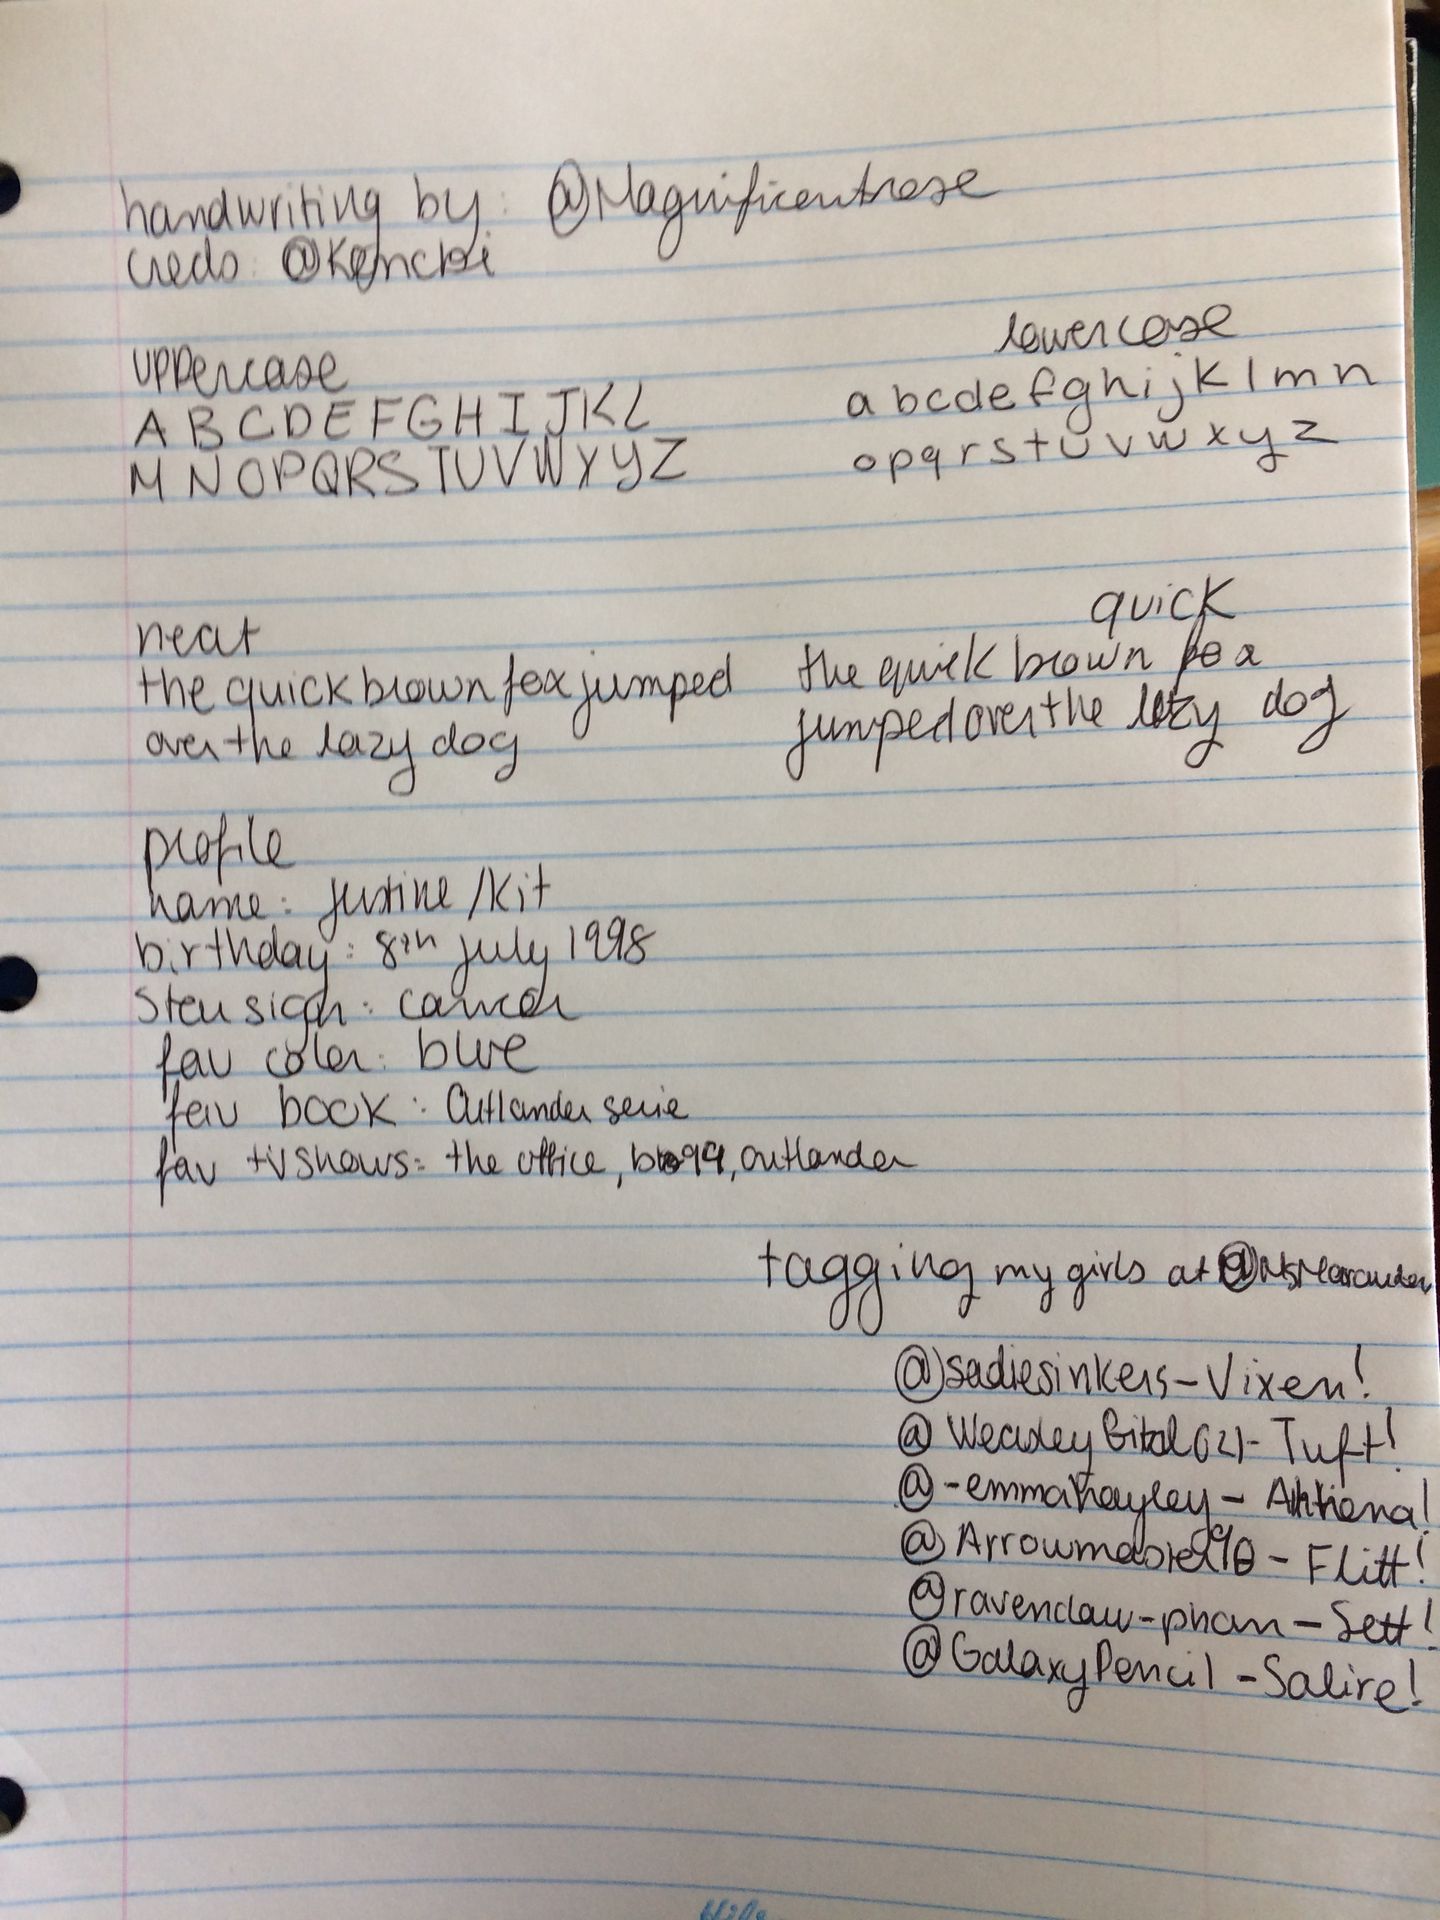 handwriting by: @Magnificentrose
creds: @Kamchi
uppercase
A B C D E F G H I J K L
M N O P Q R S T U V W X Y Z
lowercase
a b c d e f g h i j k l m n
o p q r s t u v w x y z
neat
the quick brown fox jumped
over the lazy dog
quick
the quick brown fox
jumped over the lazy dog
profile
name: justine/kit
birthday: 8th july 1998
Star sign: cancer
fav color: blue
fav book: Outlander serie
fav tv shows: the office, b99, outlander
tagging my girls at @MsMarauder
@sadiesinkers - Vixen!
@Weasley - Tuft!
@-emmahayley - Athena!
@Arrowmaster90 - Flitt!
@ravenclaw-phan - Sett!
@GalaxyPencil - Salire!